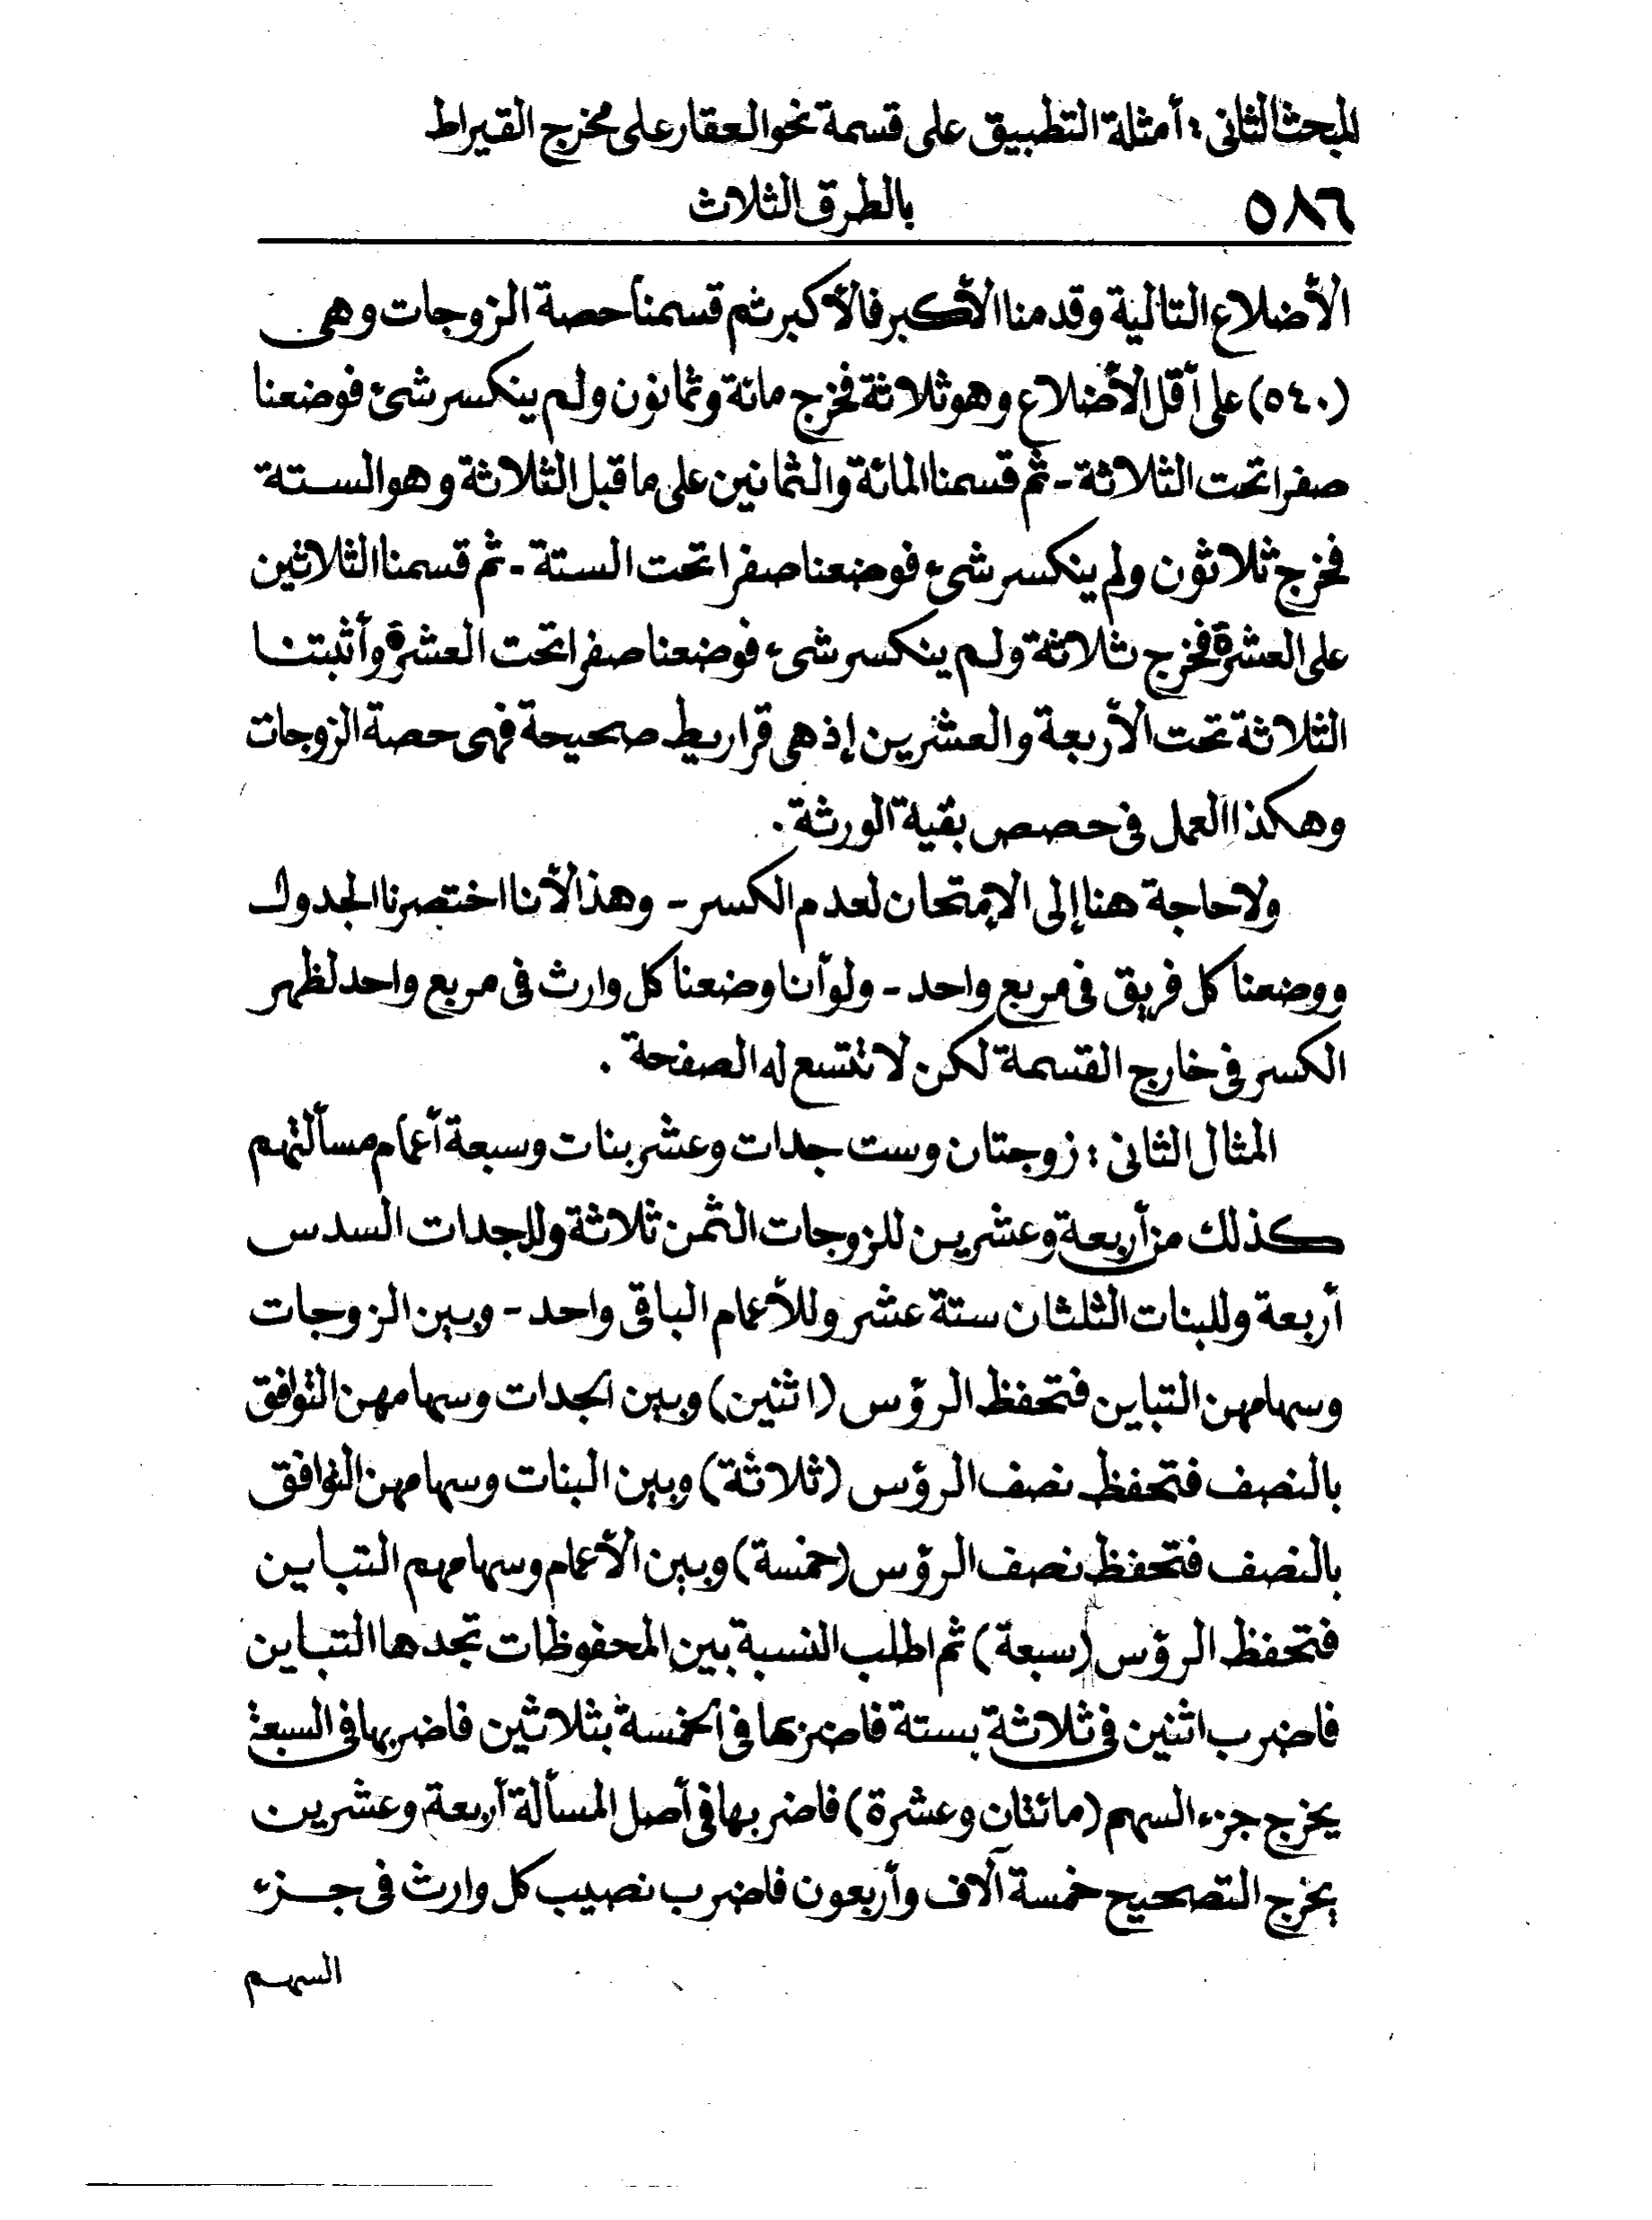 المبحث الثانى : أمثلة التطبيق على قسمة نحو العقار على مخرج القيراط
٥٨٦ بالطرق الثلاث
الأضلاع التالية وقدمنا الأكبر فالأكبر ثم قسمنا حصة الزوجات وهى
(٥٤٠) على أقل الأضلاع وهو ثلاثة فخرج مائة وثمانون ولم ينكسر شئ فوضعنا
صفرا تحت الثلاثة - ثم قسمنا المائة والثمانين على ما قبل الثلاثة وهو الستة
فخرج ثلاثون ولم ينكسر شىء فوضعنا صفرا تحت الستة - ثم قسمنا الثلاثين
على العشرة فخرج ثلاثة ولم ينكسر شىء فوضعنا صفرا تحت العشرة وأثبتنا
الثلاثة تحت الأربعة والعشرين إذ هى قراريط صحيحة فهى حصة الزوجات
وهكذا العمل فى حصص بقية الورثة .
ولا حاجة هنا إلى الإمتحان لعدم الكسر - وهذا لأنا اختصرنا الجدول
ووضعنا كل فريق فى مربع واحد - ولو أنا وضعنا كل وارث فى مربع واحد لظهر
الكسر فى خارج القسمة لكن لا تتسع له الصفحة .
المثال الثانى : زوجتان وست جدات وعشر بنات وسبعة أعمام مسألتهم
كذلك من أربعة وعشرين للزوجات الثمن ثلاثة وللجدات السدس
أربعة وللبنات الثلثان ستة عشر وللأعمام الباقى واحد - وبين الزوجات
وسهامهن التباين فتحفظ الرؤس (اثنين) وبين الجدات وسهامهن التوافق
بالنصف فتحفظ نصف الرؤس (ثلاثة) وبين البنات وسهامهن التوافق
بالنصف فتحفظ نصف الرؤس (خمسة) وبين الأعمام وسهامهم التباين
فتحفظ الرؤس (سبعة) ثم اطلب النسبة بين المحفوظات تجدها التباين
فاضرب اثنين فى ثلاثة بستة فاضربها فى الخمسة بثلاثين فاضربها فى السبعة
يخرج جزء السهم (مائتان وعشرة) فاضربها فى أصل المسألة أربعة وعشرين
يخرج التصحيح خمسة آلاف وأربعون فاضرب نصيب كل وارث فى جزء
السهم